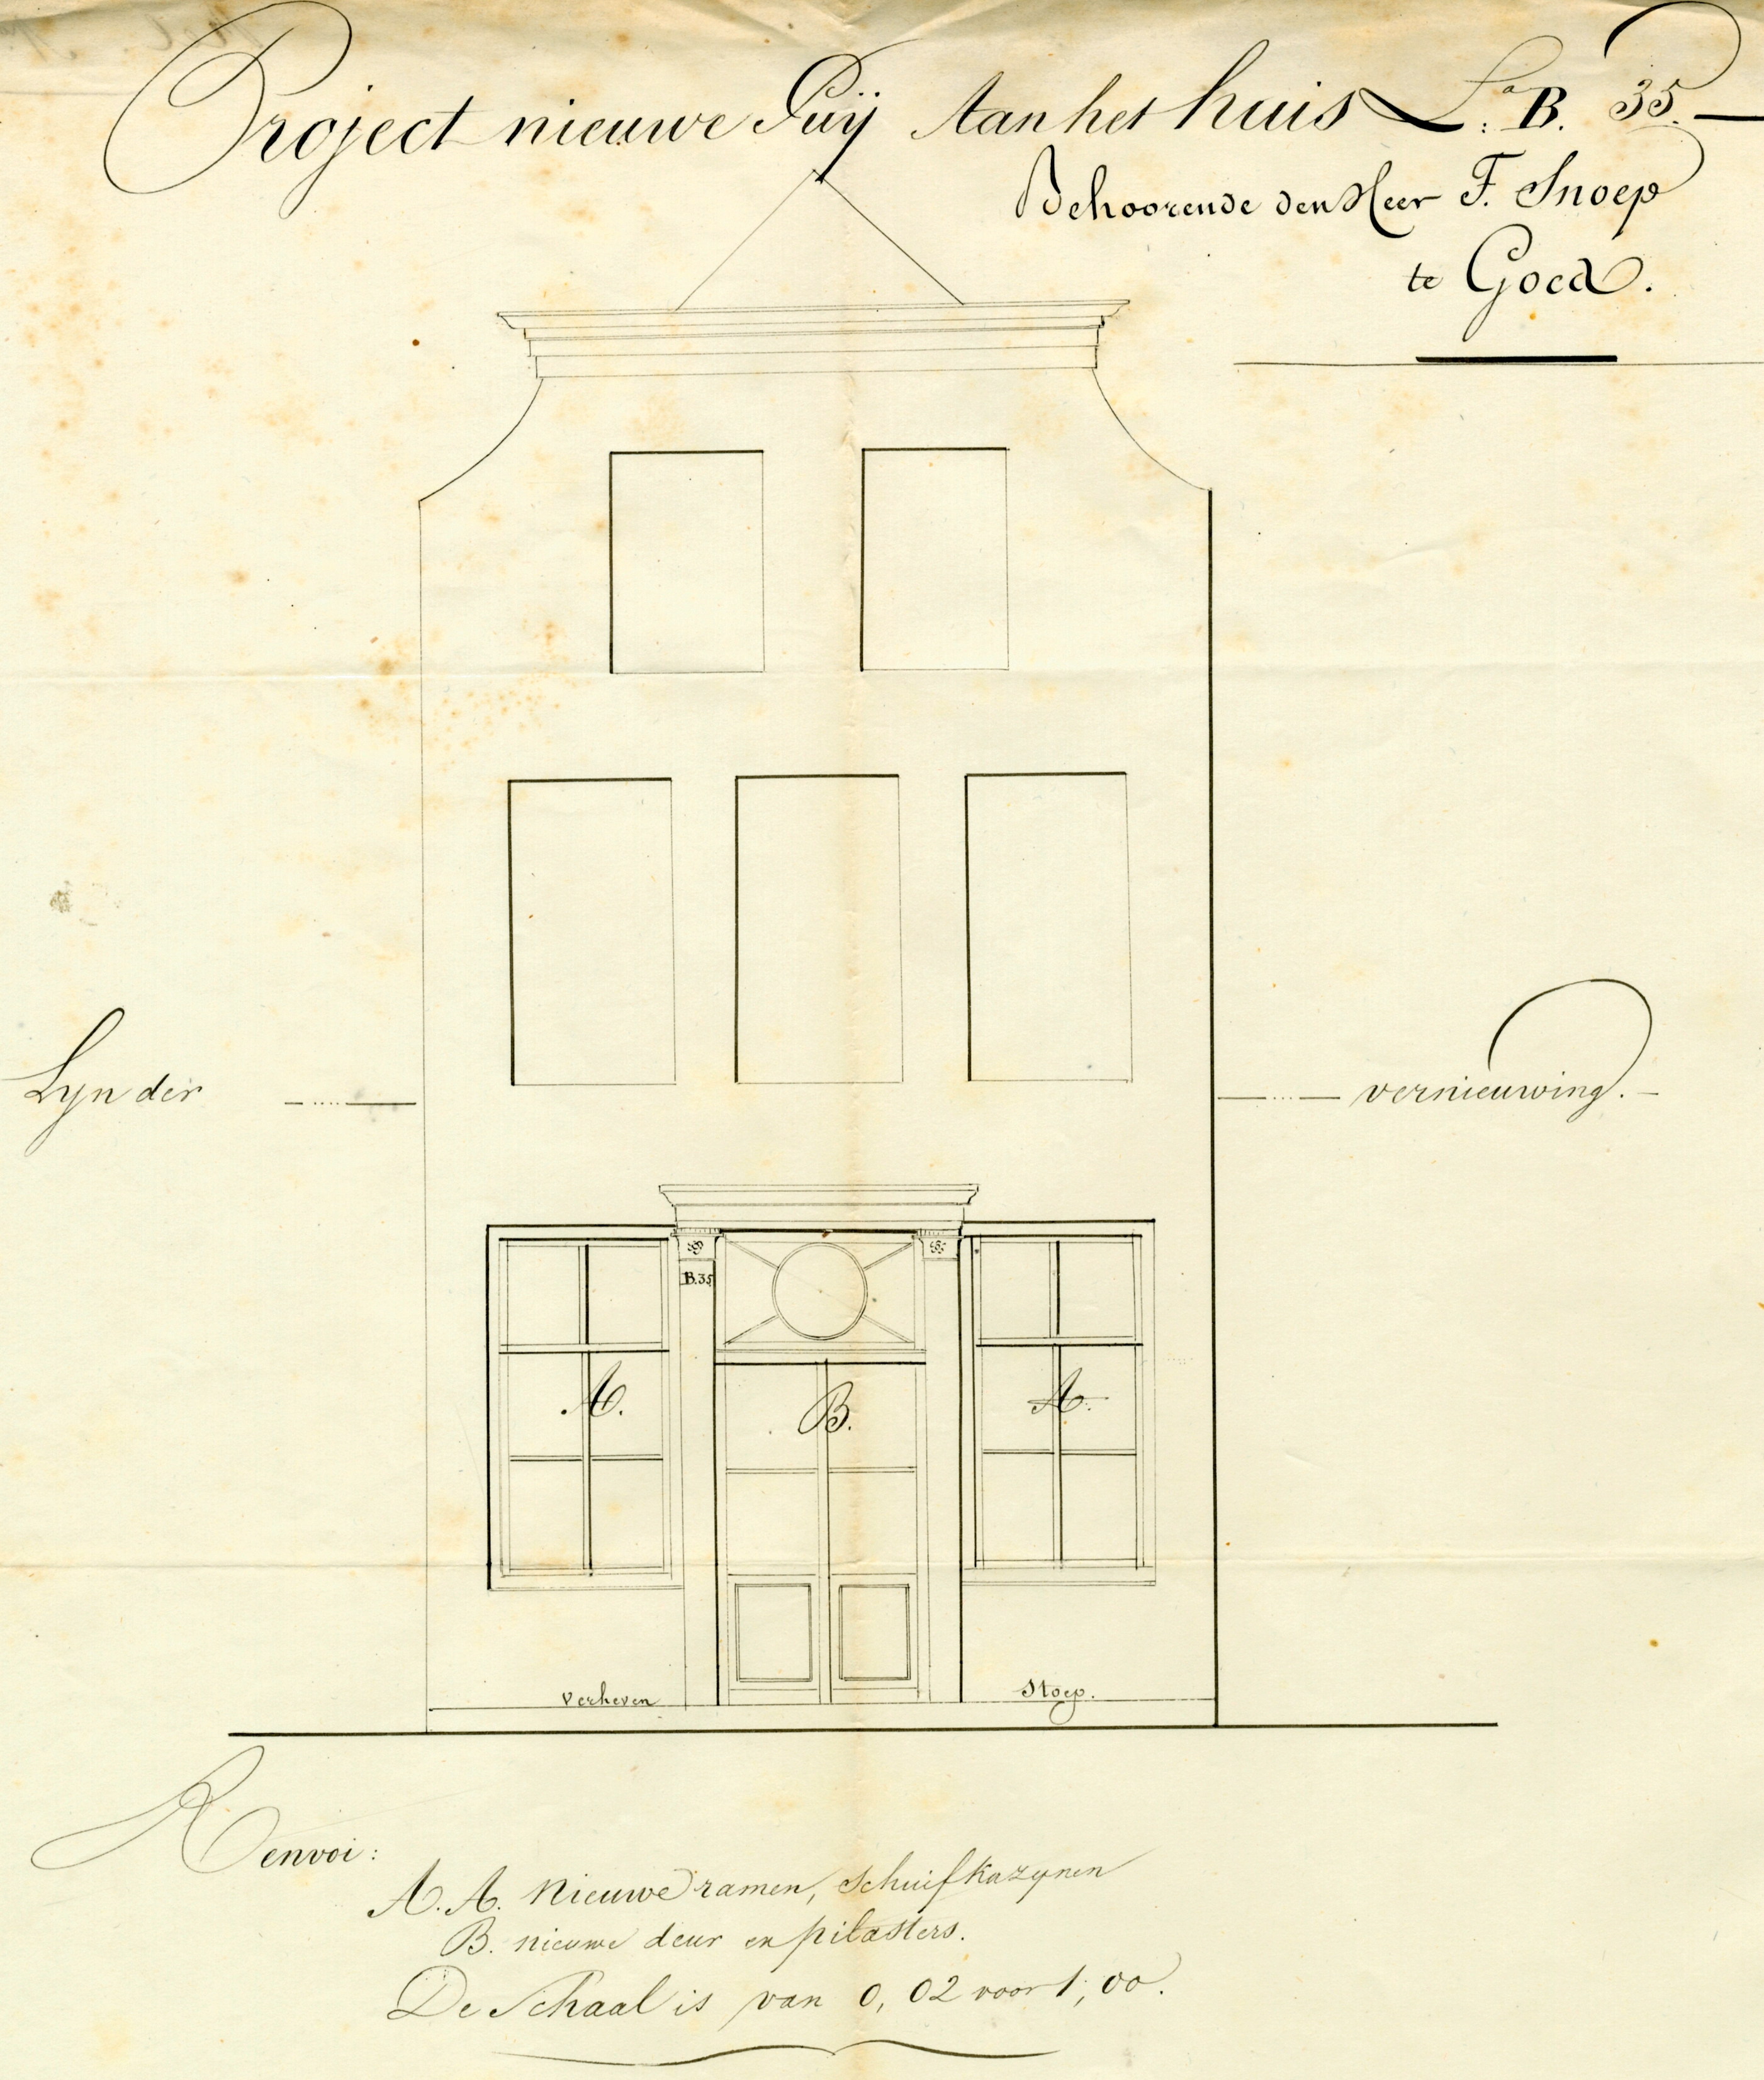 Project nieuwe Puÿ Aan het huis L:a B. 35.
Behoorende den Heer F. Snoep
te Goed.
Lyn der vernieuwing.
B.35
A. B. A.
verheven Stoep.
Renvoi:
A. A. Nieuwe ramen, Schuifkazynen
B. nieuwe deur en pilasters.
De Schaal is van 0,02 voor 1,00.